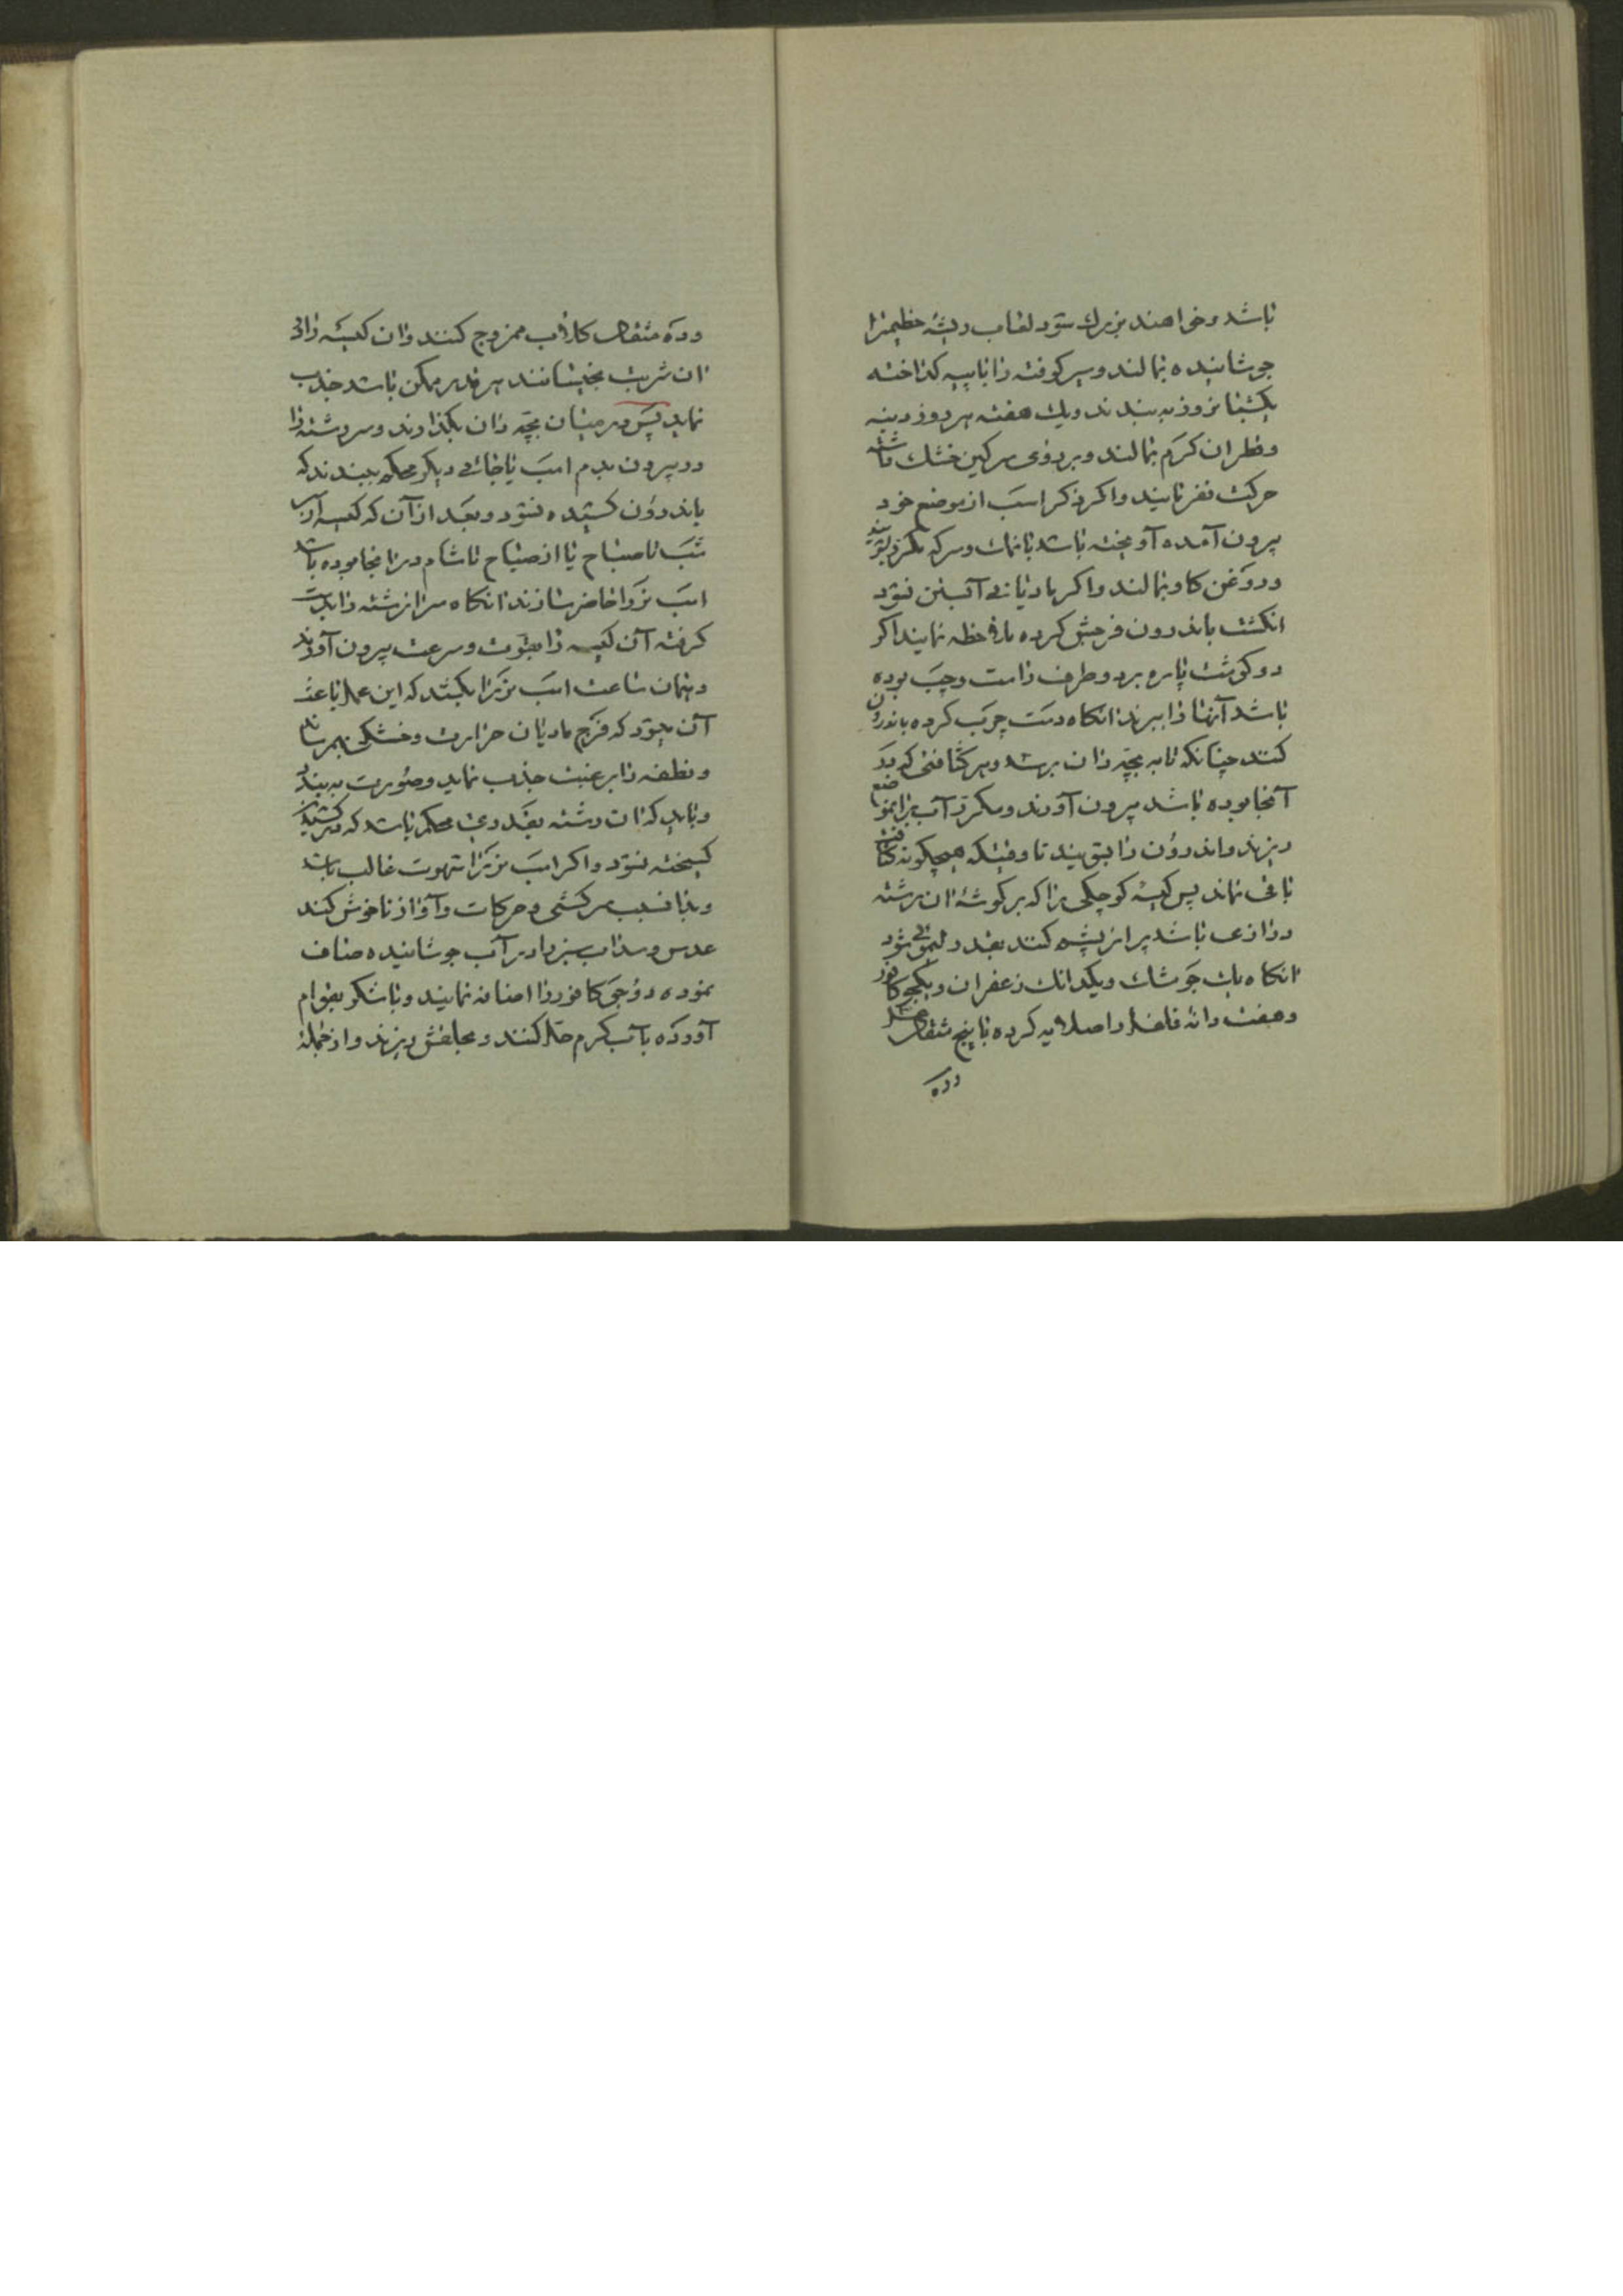 باشد و خواهند بزرك شود لعاب ریشۀ خطمیرا
جوشانیده بمالند و سیر کوفته را با پیه کداخته
یکشبانروز به بندند و یك هفته هر روز دنبه
و قطران کرم بمالند و بر روی سرکین خشك
حرکت نفرمایند و اکر ذکر اسب از موضع خود
بیرون آمده آویخته باشد با نمك و سرکه مکرر بشویند
و روغن کاو بمالند و اکر مادیانی آبستن نشود
انکشت باندرون فرجش کرده ملاحظه نمایند اکر
دو کوشت پاره بر دو طرف راست و چپ بوده
باشد آنها را ببرند انکاه دست چرب کرده باندرون
کنند چنانکه تا به بچه دان برسد و هر کثافتی که در
آنجا بوده باشد بیرون آورند و مکرر آب برانموضع
ریزند و اندرون را بشویند تا وقتیکه هیچکونه کثافت
باقی نماند پس کیسۀ کوچکی را که بر کوشۀ ان رشته
درازی باشد پر از پشم کنند بقدر لیموئی شود
انکاه یك جو مشك و یکدانك زعفران و یکجو کافور
و هفت دانه فلفل را صلایه کرده با پنج مثقال عسل
وده
وده مثقال کلاب ممزوج کنند و ان کیسه را در
ان شربت بخیسانند هر قدر ممکن باشد جذب
نماید پس در میان بچه دان بکذارند و سر رشته را
در بیرون بدم اسب یا جائی دیکر محکم ببندند که
باندرون کشیده نشود و بعد از آن که کیسه از
شب تا صباح یا از صباح تا شام در انجا بوده باشد
اسب نر را حاضر سازند انکاه سر ان رشته را بدست
کرفته آن کیسه را بقوت و سرعت بیرون آورند
و بهمان ساعت اسب نر را بکشند که این عمل باعث
آن میشود که فرج مادیان حرارت و خشکی بهم رساند
و نطفه را برغبت جذب نماید و صورت به بندد
و باید که ان رشته بقدری محکم باشد که در کشیدن
کسیخته نشود و اکر اسب نر را شهوت غالب باشد
و بدانسبب سرکشی و حرکات و آواز ناخوش کند
عدس و سداب سبز را در آب جوشانیده صاف
نموده دو جو کافور را اضافه نمایند و با شکر بقوام
آورده بآب کرم حل کنند و بحلقش ریزند و از جملۀ